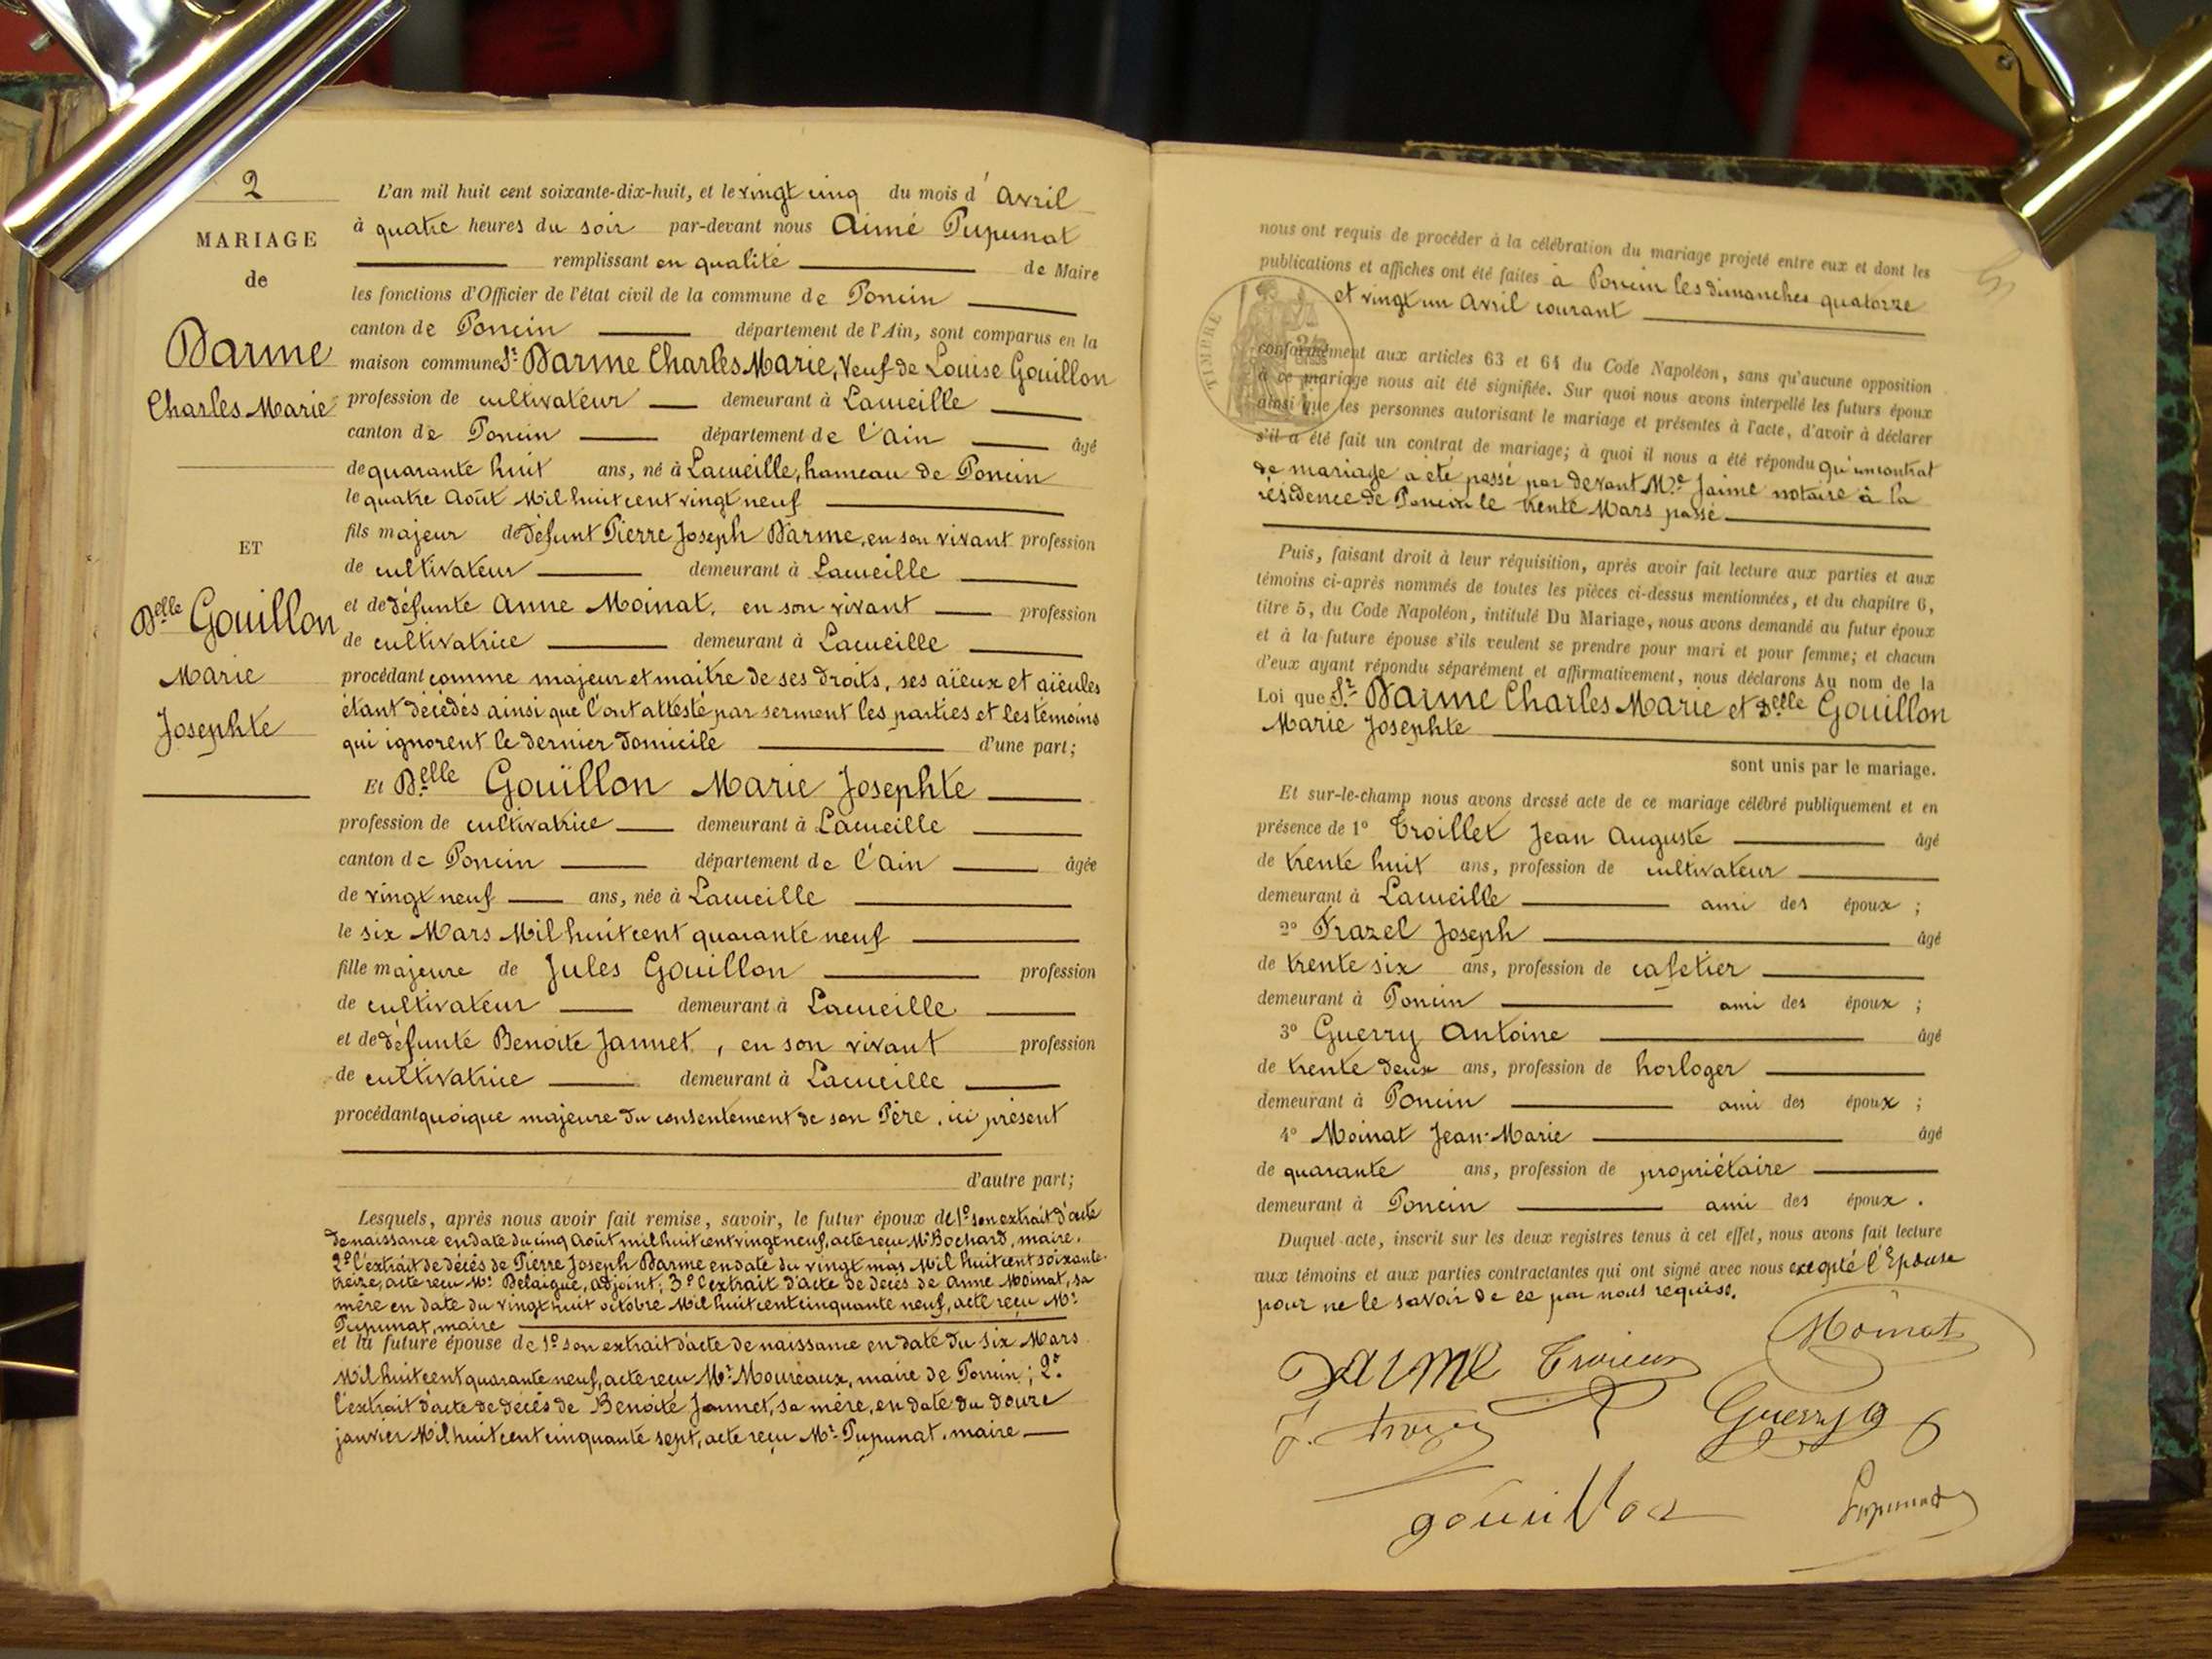 2
MARIAGE
de
Darme
Charles Marie
ET
Delle Gouillon
Marie
Josephte
L'an mil huit cent soixante-dix-huit, et le vingt cinq du mois d'Avril
à quatre heures du soir par-devant nous Aimé Pupunat
remplissant en qualité de Maire
les fonctions d'Officier de l'état civil de la commune de Poncin
canton de Poncin département de l'Ain, sont comparus en la
maison commune Sr Darme Charles Marie, Veuf de Louise Gouillon
profession de cultivateur demeurant à Lacueille
canton de Poncin département de l'Ain âgé
de quarante huit ans, né à Lacueille, hameau de Poncin
le quatre Août Mil huit cent vingt neuf
fils majeur de défunt Pierre Joseph Darme, en son vivant profession
de cultivateur demeurant à Lacueille
et de défunte Anne Moinat, en son vivant profession
de cultivatrice demeurant à Lacueille
procédant comme majeur et maître de ses droits, ses aïeux et aïeules
étant décédés ainsi que l'ont attesté par serment les parties et les témoins
qui ignorent le dernier domicile d'une part;
Et Delle Gouïllon Marie Josephte
profession de cultivatrice demeurant à Lacueille
canton de Poncin département de l'Ain âgée
de vingt neuf ans, née à Lacueille
le six Mars Mil huit cent quarante neuf
fille majeure de Jules Gouillon profession
de cultivateur demeurant à Lacueille
et de défunte Benoite Jannet, en son vivant profession
de cultivatrice demeurant à Lacueille
procédant quoique majeure du consentement de son Père, ici présent
d'autre part;
Lesquels, après nous avoir fait remise, savoir, le futur époux de 1° son extrait d'acte
de naissance en date du cinq Août mil huit cent vingt neuf, acte reçu Mr Bochard, maire,
2° l'extrait de décés de Pierre Joseph Darme en date du vingt mas Mil huit cent soixante-
treize, acte reçu Mr Delaigue, adjoint; 3° l'extrait d'acte de décés de Anne Moinat, sa
mère en date du vingt huit octobre Mil huit cent cinquante neuf, acte reçu Mr
Pupunat, maire
et la future épouse de 1° son extrait d'acte de naissance en date du six Mars
Mil huit cent quarante neuf, acte reçu Mr Moureaux, maire de Poncin; 2°
l'extrait d'acte de décés de Benoite Jannet, sa mère, en date du douze
janvier Mil huit cent cinquante sept, acte reçu Mr Pupunat, maire
nous ont requis de procéder à la célébration du mariage projeté entre eux et dont les
publications et affiches ont été faites à Poncin les dimanches quatorze
et vingt un Avril courant
TIMBRE
conformément aux articles 63 et 64 du Code Napoléon, sans qu'aucune opposition
à ce mariage nous ait été signifiée. Sur quoi nous avons interpellé les futurs époux
ainsi que les personnes autorisant le mariage et présentes à l'acte, d'avoir à déclarer
s'il a été fait un contrat de mariage; à quoi il nous a été répondu qu'un contrat
de mariage a été passé par devant Me Jaime notaire à la
résidence de Poncin le trente Mars passé
Puis, faisant droit à leur réquisition, après avoir fait lecture aux parties et aux
témoins ci-après nommés de toutes les pièces ci-dessus mentionnées, et du chapitre 6,
titre 5, du Code Napoléon, intitulé Du Mariage, nous avons demandé au futur époux
et à la future épouse s'ils veulent se prendre pour mari et pour femme; et chacun
d'eux ayant répondu séparément et affirmativement, nous déclarons Au nom de la
Loi que Sr Darme Charles Marie et Delle Gouillon
Marie Josephte
sont unis par le mariage.
Et sur-le-champ nous avons dressé acte de ce mariage célébré publiquement et en
présence de 1° Troillet Jean Auguste âgé
de trente huit ans, profession de cultivateur
demeurant à Lacueille ami des époux;
2° Frazel Joseph âgé
de trente six ans, profession de cafetier
demeurant à Poncin ami des époux;
3° Guerry Antoine âgé
de trente deux ans, profession de horloger
demeurant à Poncin ami des époux;
4° Moinat Jean-Marie âgé
de quarante ans, profession de propriétaire
demeurant à Poncin ami des époux.
Duquel acte, inscrit sur les deux registres tenus à cet effet, nous avons fait lecture
aux témoins et aux parties contractantes qui ont signé avec nous excepté l'Epouse
pour ne le savoir de ce par nous requise.
Moinat
Darme
Guerry a
gouillon
Pupunat